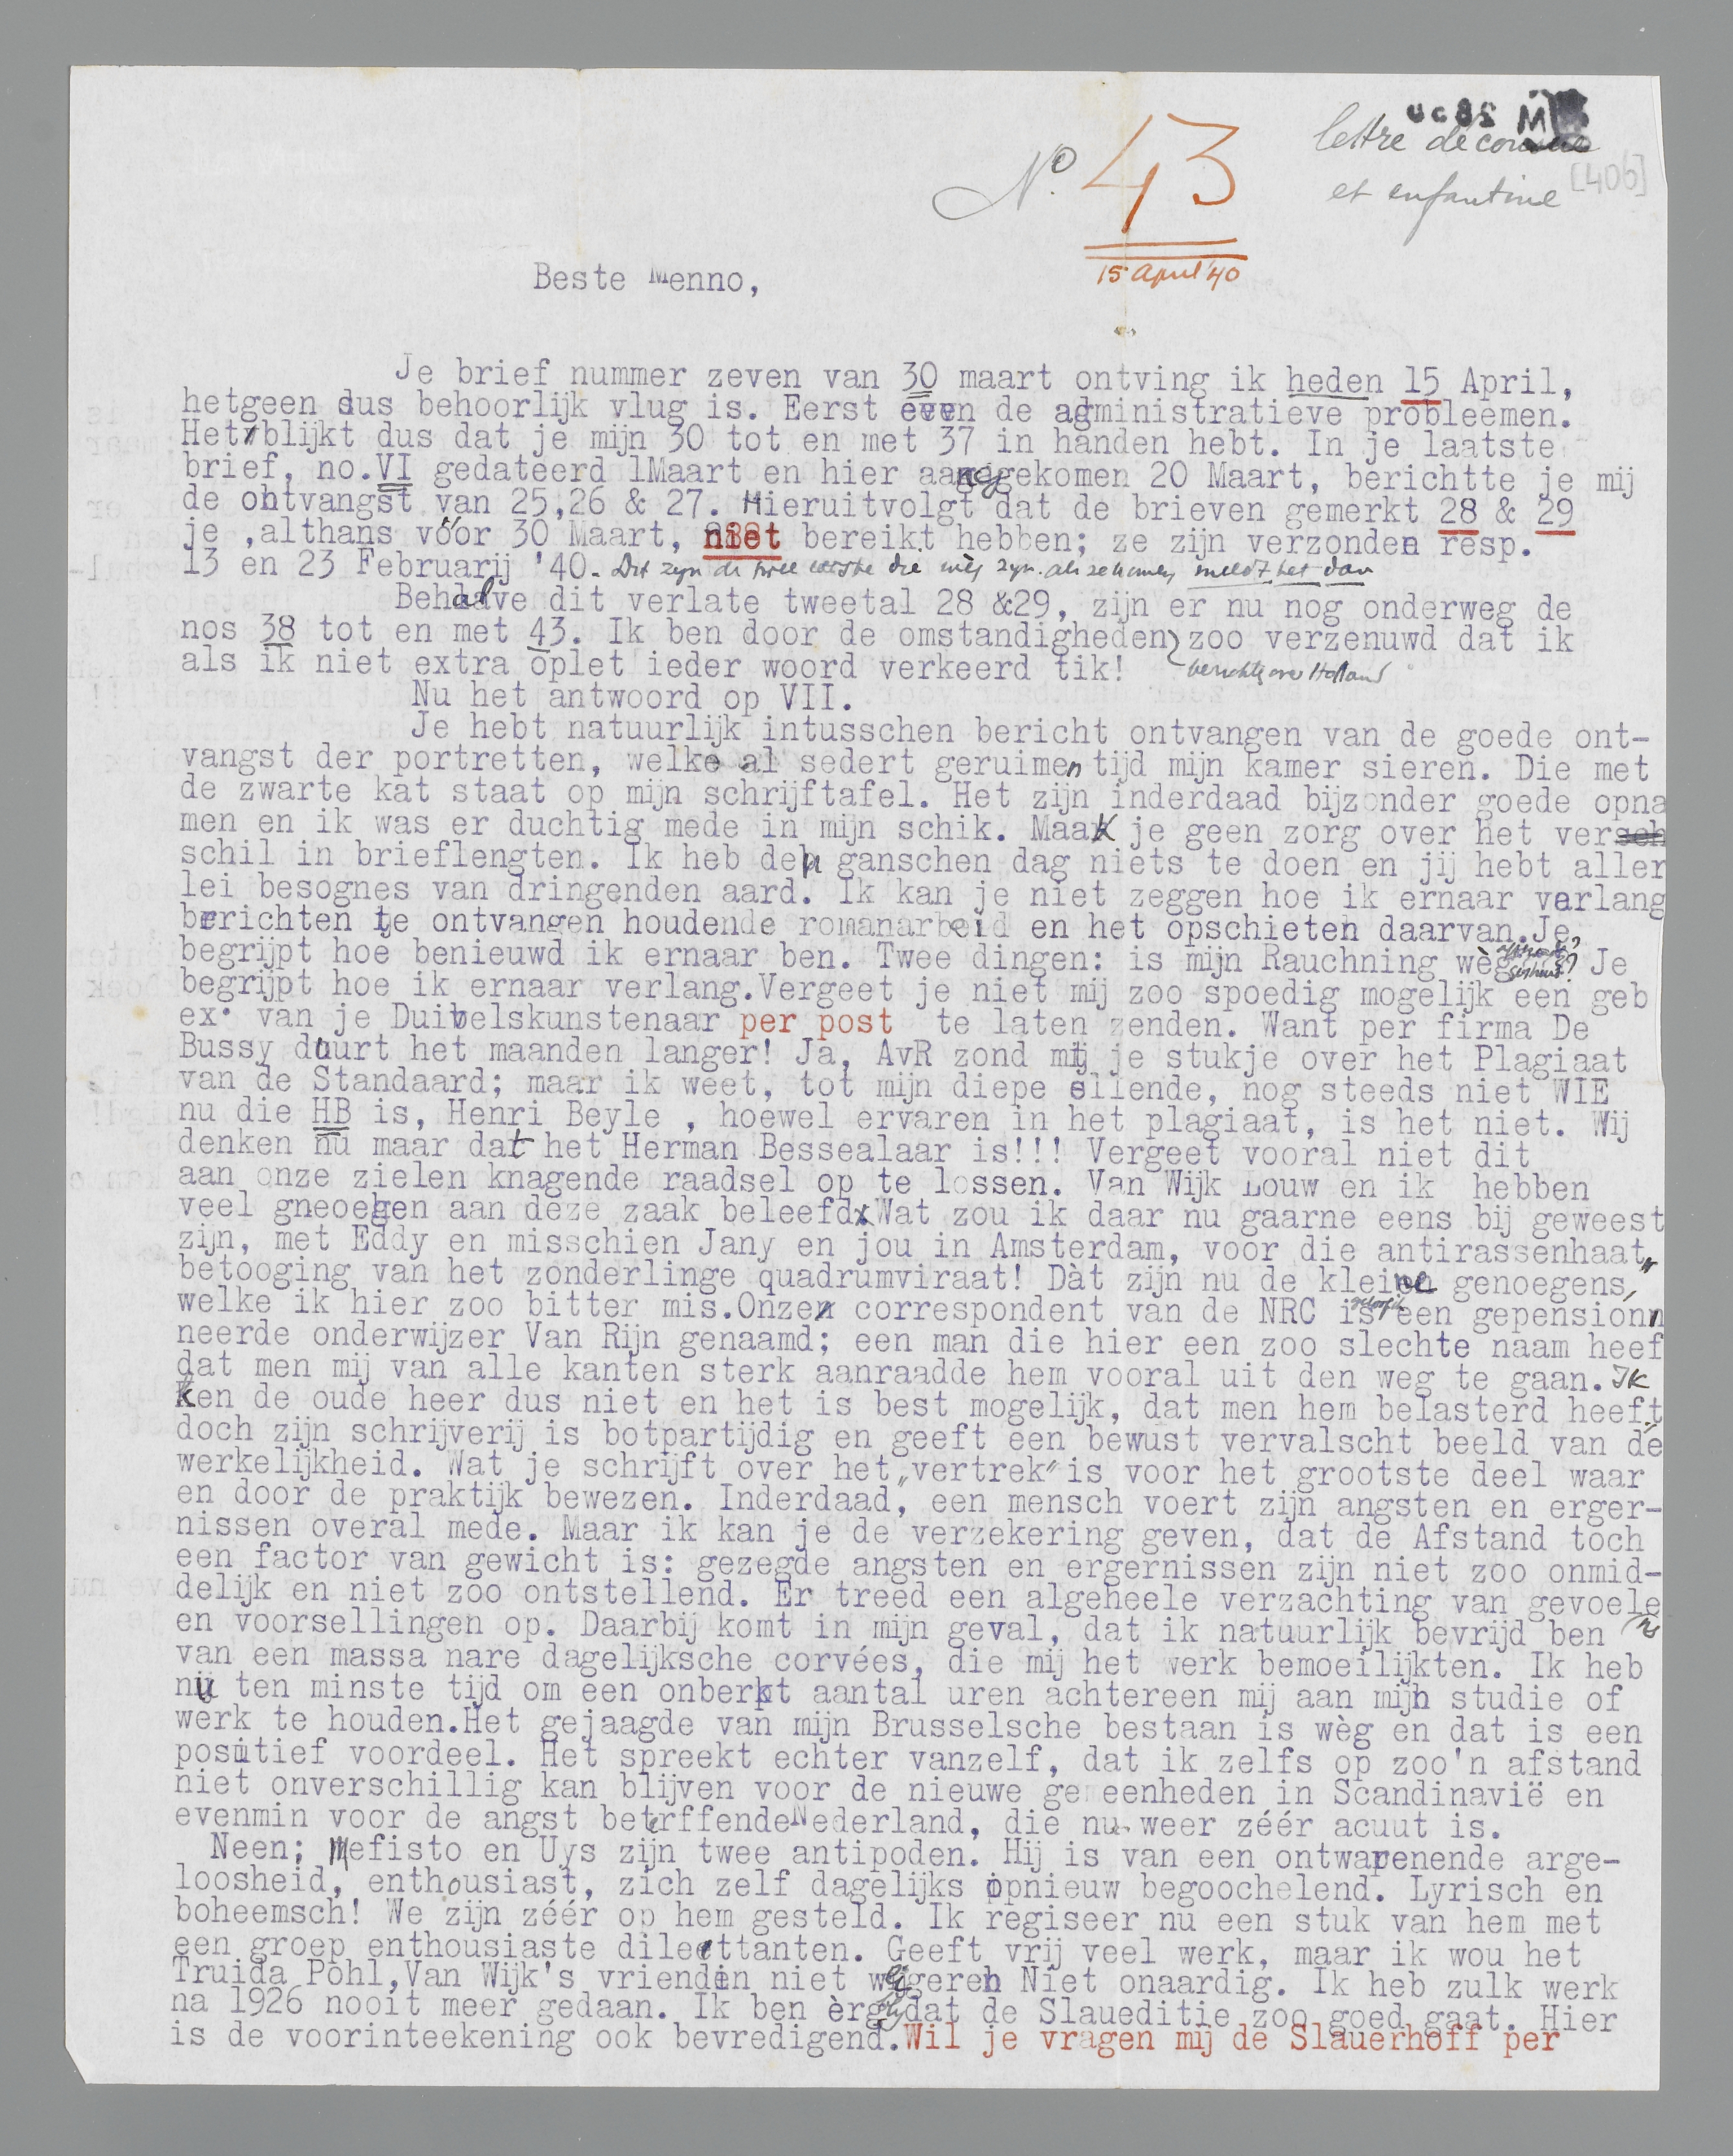 lettre décousue
et enfantine [406]
No. 43
15 April '40
Beste Menno,
Je brief nummer zeven van 30 maart ontving ik heden 15 April,
hetgeen dus behoorlijk vlug is. Eerst even de administratieve probleemen.
Het blijkt dus dat je mijn 30 tot en met 37 in handen hebt. In je laatste
brief, no.VI gedateerd 1Maart en hier aangekomen 20 Maart, berichtte je mij
de ontvangst van 25,26 & 27. Hieruitvolgt dat de brieven gemerkt 28 & 29
je ,althans vóór 30 Maart, niet bereikt hebben; ze zijn verzonden resp.
13 en 23 Februarij '40. Dit zijn de twee eerste die wèg zijn. als ze komen meldt het dan
Behalve dit verlate tweetal 28 &29, zijn er nu nog onderweg de
nos 38 tot en met 43. Ik ben door de omstandigheden zoo verzenuwd dat ik
als ik niet extra oplet ieder woord verkeerd tik! berichten over Holland
Nu het antwoord op VII.
Je hebt natuurlijk intusschen bericht ontvangen van de goede ont-
vangst der portretten, welke al sedert geruimen tijd mijn kamer sieren. Die met
de zwarte kat staat op mijn schrijftafel. Het zijn inderdaad bijzonder goede opna
men en ik was er duchtig mede in mijn schik. Maak je geen zorg over het ver
schil in brieflengten. Ik heb den ganschen dag niets te doen en jij hebt aller
lei besognes van dringenden aard. Ik kan je niet zeggen hoe ik ernaar verlang
berichten te ontvangen houdende romanarbeid en het opschieten daarvan.Je
begrijpt hoe benieuwd ik ernaar ben. Twee dingen: is mijn Rauchning wèg ? Je
begrijpt hoe ik ernaar verlang.Vergeet je niet mij zoo spoedig mogelijk een geb
ex. van je Duivelskunstenaar per post te laten zenden. Want per firma De
Bussy duurt het maanden langer! Ja, AvR zond mij je stukje over het Plagiaat
van de Standaard; maar ik weet, tot mijn diepe ellende, nog steeds niet WIE
nu die HB is, Henri Beyle , hoewel ervaren in het plagiaat, is het niet. Wij
denken nu maar dat het Herman Bessealaar is!!! Vergeet vooral niet dit
aan onze zielen knagende raadsel op te lossen. Van Wijk Louw en ik hebben
veel gneoegen aan deze zaak beleefd.Wat zou ik daar nu gaarne eens bij geweest
zijn, met Eddy en misschien Jany en jou in Amsterdam, voor die antirassenhaat"
betooging van het zonderlinge quadrumviraat! Dàt zijn nu de kleine genoegens,
welke ik hier zoo bitter mis.Onze correspondent van de NRC is geloof ik een gepension
neerde onderwijzer Van Rijn genaamd; een man die hier een zoo slechte naam heef
dat men mij van alle kanten sterk aanraadde hem vooral uit den weg te gaan. Ik
Ken de oude heer dus niet en het is best mogelijk, dat men hem belasterd heeft
doch zijn schrijverij is botpartijdig en geeft een bewust vervalscht beeld van de
werkelijkheid. Wat je schrijft over het „vertrek" is voor het grootste deel waar
en door de praktijk bewezen. Inderdaad, een mensch voert zijn angsten en erger-
nissen overal mede. Maar ik kan je de verzekering geven, dat de Afstand toch
een factor van gewicht is: gezegde angsten en ergernissen zijn niet zoo onmid-
delijk en niet zoo ontstellend. Er treed een algeheele verzachting van gevoele
en voorsellingen op. Daarbij komt in mijn geval, dat ik natuurlijk bevrijd ben ns
van een massa nare dagelijksche corvées, die mij het werk bemoeilijkten. Ik heb
nu ten minste tijd om een onberkt aantal uren achtereen mij aan mijn studie of
werk te houden.Het gejaagde van mijn Brusselsche bestaan is wèg en dat is een
positief voordeel. Het spreekt echter vanzelf, dat ik zelfs op zoo'n afstand
niet onverschillig kan blijven voor de nieuwe gemeenheden in Scandinavië en
evenmin voor de angst betrffende Nederland, die nu weer zéér acuut is.
Neen; Mefisto en Uys zijn twee antipoden. Hij is van een ontwapenende arge-
loosheid, enthousiast, zich zelf dagelijks opnieuw begoochelend. Lyrisch en
boheemsch! We zijn zéér op hem gesteld. Ik regiseer nu een stuk van hem met
een groep enthousiaste dilettanten. Geeft vrij veel werk, maar ik wou het
Truida Pohl,Van Wijk's vriendin niet weigeren Niet onaardig. Ik heb zulk werk
na 1926 nooit meer gedaan. Ik ben èrg blij dat de Slaueditie zoo goed gaat. Hier
is de voorinteekening ook bevredigend.Wil je vragen mij de Slauerhoff per